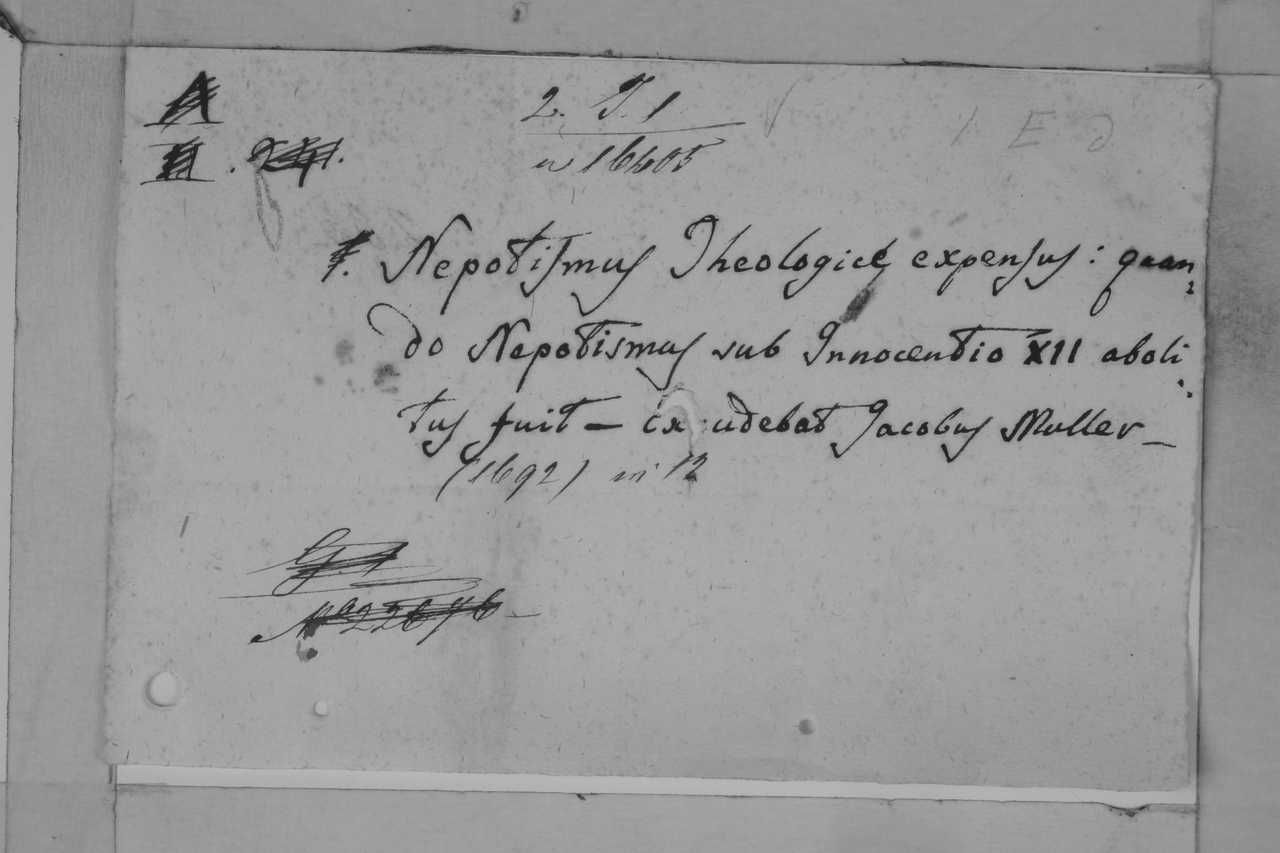 A
2. J. 1
II.
n 16405
1 E d
1. Nepotismus Theologicè expensus: quan-
do Nepotismus sub Innocentio XII aboli-
tus fuit — excudebat Jacobus Muller —
(1692) in 12
G. 1
Nº 22646 —